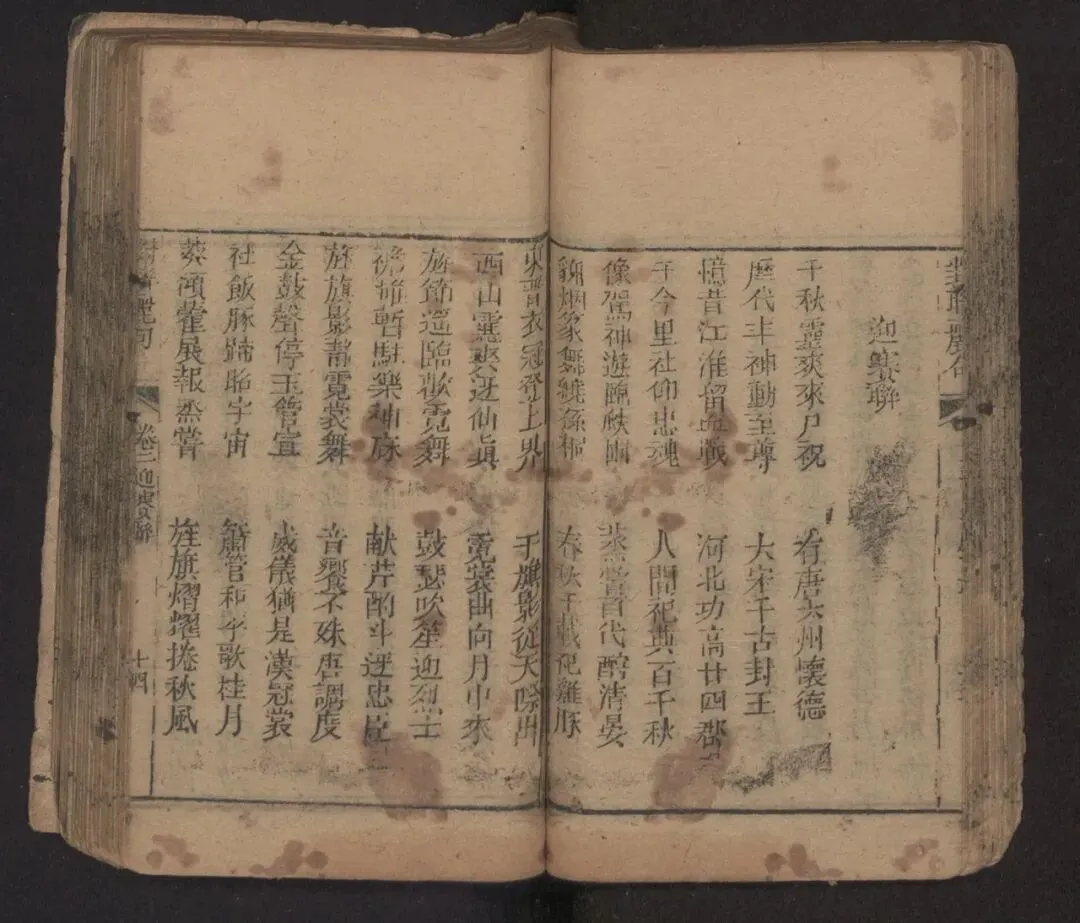 迎賽聯
千秋靈爽來尸祝 有唐六州懷德
歷代丰神動至尊 大宋千古封王
憶昔江淮留血戰 河北功高廿四郡
于今里社仰忠魂 人間祀典百千秋
像駕神遊臨 蒸嘗百代酹清晏
春秋千載祀雞豚
東晋衣冠登上界 于旗影從天際出
西山靈爽迓仙眞 霓裳曲向月中來
旌節遥臨歌霓舞 鼓瑟吹笙迎烈士
暫駐樂神庥 献芹酌斗迓忠臣
旌旗影静霓裳舞 音響不殊唐調度
金鼓聲停玉管宣 威儀猶是漢冠裳
社飯豚蹄昭宇宙 簫管和平歌桂月
葵傾藿展報蒸嘗 旌旗熠耀捲秋風
卷二迎賽聯
十四